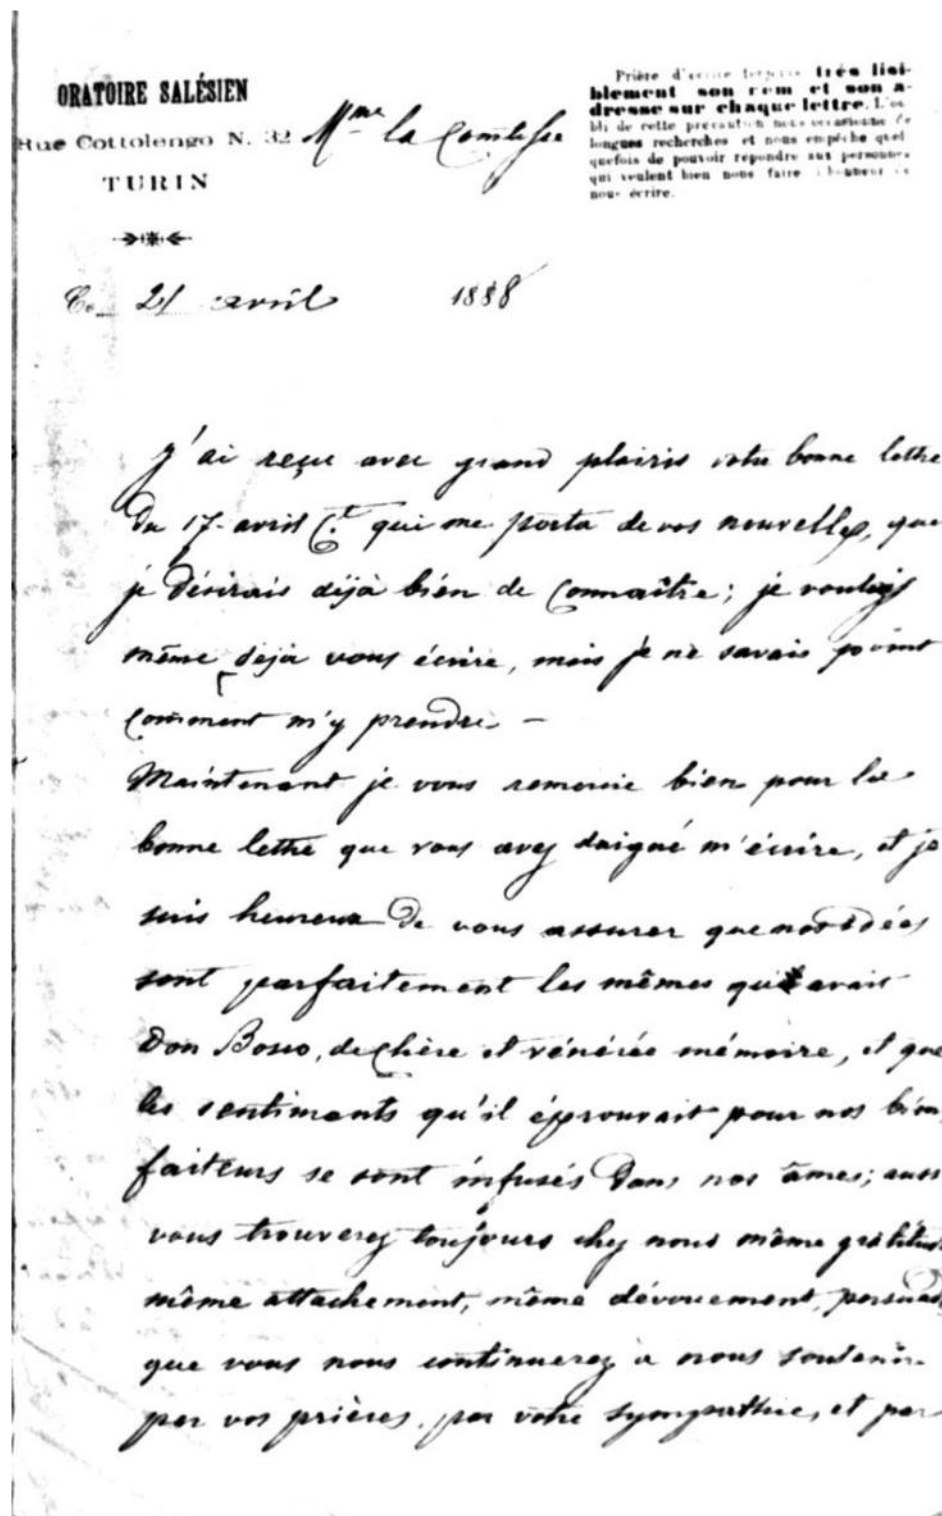 ORATOIRE SALÉSIEN
Rue Cottolengo N. 32
TURIN
Mme la Comtesse
Prière d'écrire toujours très lisi-
blement son nom et son a-
dresse sur chaque lettre. L'ou-
bli de cette précaution nous occasionne de
longues recherches et nous empêche quel-
quefois de pouvoir repondre aux personnes
qui veulent bien nous faire l'honneur de
nous écrire.
Ce 21 avril 1888
J'ai reçu avec grand plairis votre bonne lettre
du 17 avril Ct qui me porta de vos nouvelles, que
je désirais déjà bien de Connaître; je voulais
même dejà vous écrire, mais je ne savais point
Comment m'y prendre -
Maintenant je vous remercie bien pour la
bonne lettre que vous avez daigné m'écrire, et je
suis heureux de vous assurer que nos idées
sont parfaitement les mêmes qu'avait
Don Bosco, de Chère et vénérée mémoire, et que
les sentiments qu'il éprouvait pour nos bien
faiteurs se sont infusés dans nos âmes; auss
vous trouverez toujours chez nous même gratitud
même attachement, même dévouement, persuad
que vous nous continuerez à nous soutenir
par vos prières, par votre sympathie, et par